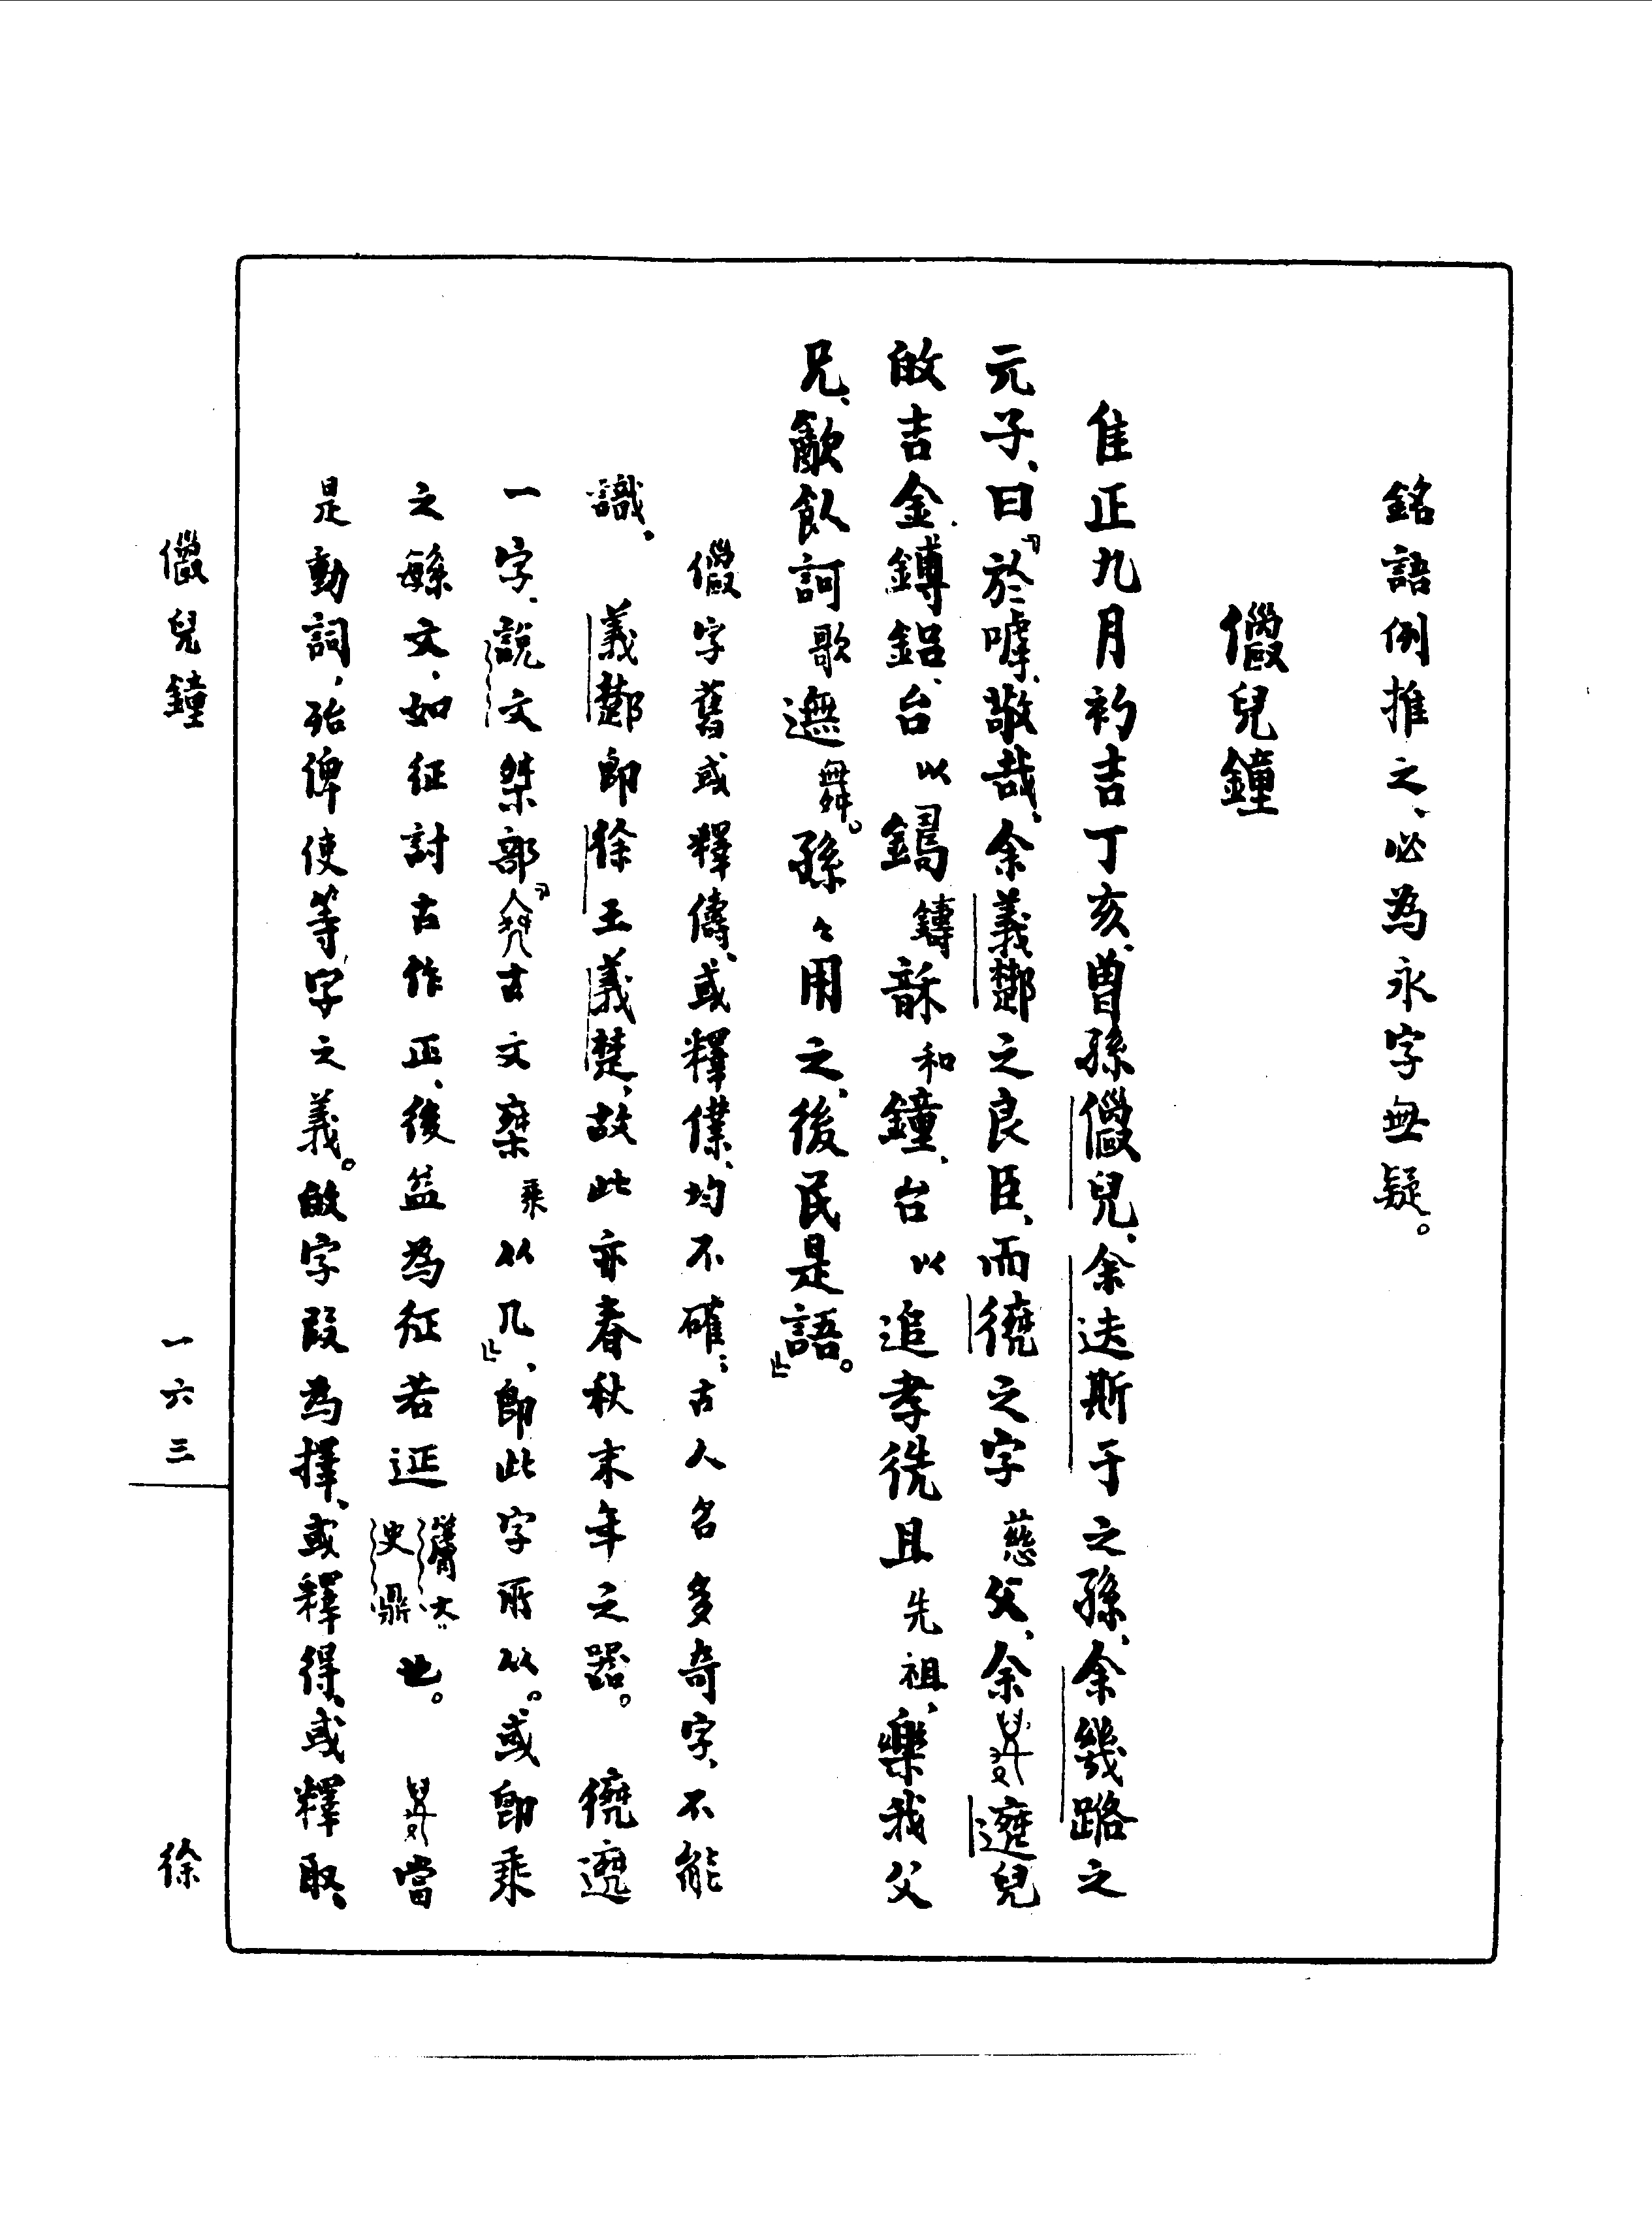 銘語例推之、必為永字無疑。
兒鐘
隹正九月初吉丁亥、曾孫兒、余迭斯于之孫、余幾路之
元子、曰『於嘑、敬哉、余義楚之良臣、而之字慈父、余兒
吉金鎛鋁、台以鑄龢和鐘、台以追孝先且先祖、樂我父
兄、飲訶歌遱舞。孫々用之、後民是語。』
字舊或釋儔、或釋僕、均不確；古人名多奇字、不能
識、 義楚即徐王義楚、故此亦春秋末年之器。
一字、說文桀部『古文椉乘从几』、即此字所从。或即乘
之緐文、如征討古作正、後益為征若䢌簷大史鼎也。 當
是動詞、殆俾使等字之義。字叚為擇、或釋得、或釋取、
兒鐘 一六三 徐